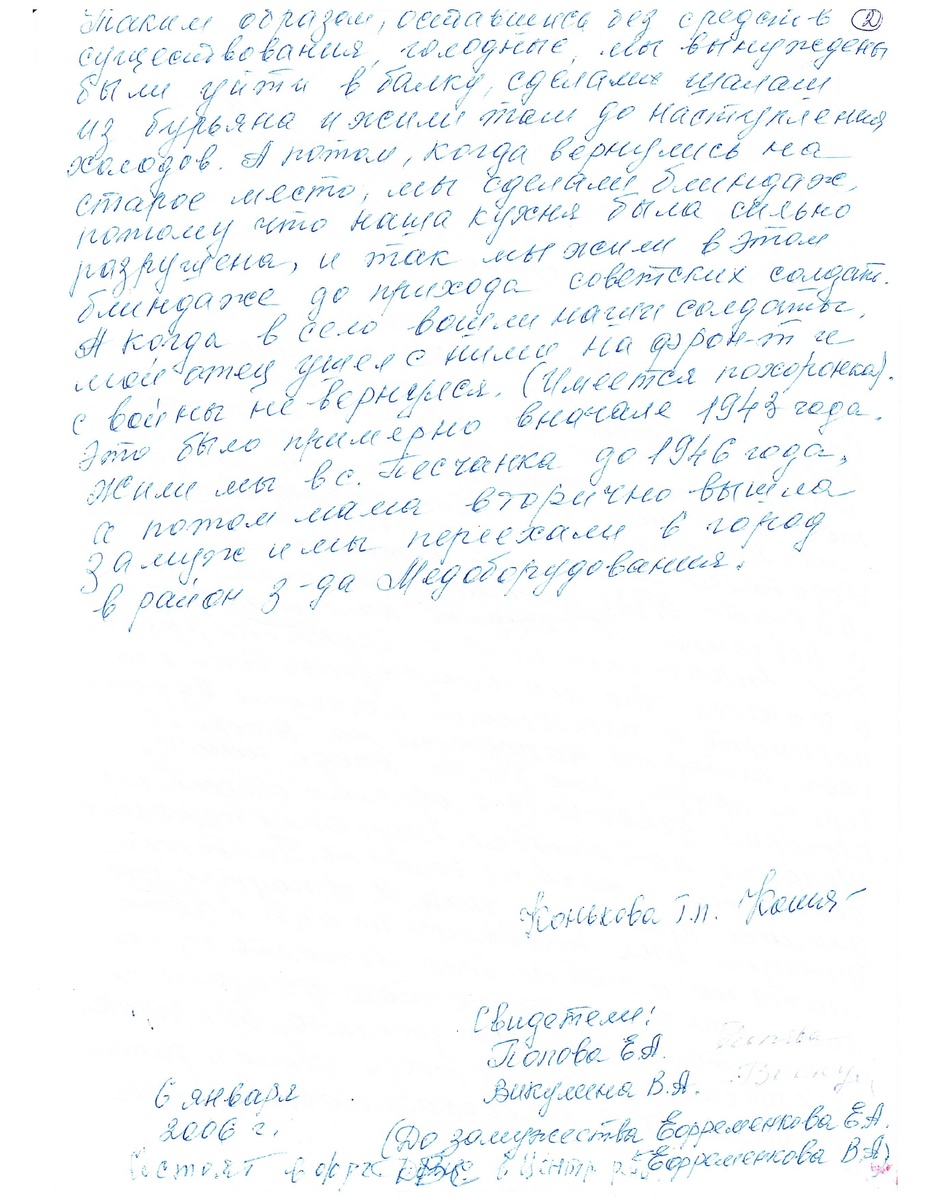 Таким образом, оставшись без средств ②
существования, голодные, мы вынуждены
были уйти в балку, сделали шалаш
из бурьяна и жили там до наступления
холодов. А потом, когда вернулись на
старое место, мы сделали блиндаж,
потому что наша кухня была сильно
разрушена, и так мы жили в этом
блиндаже до прихода советских солдат.
А когда в село вошли наши солдаты,
мой отец ушел с ними на фронт и
с войны не вернулся. (Имеется похоронка).
Это было примерно вначале 1943 года.
Жили мы в с. Песчанка до 1946 года,
а потом мама вторично вышла
замуж и мы переехали в город
в район з-да Медоборудования.
Конькова Т.п.
Свидетели:
Попова Е.А.
Викулина В.А.
6 января
2006 г.
(До замужества Ефременкова Е.А.
Состоят в Центр Ефременкова В.А)